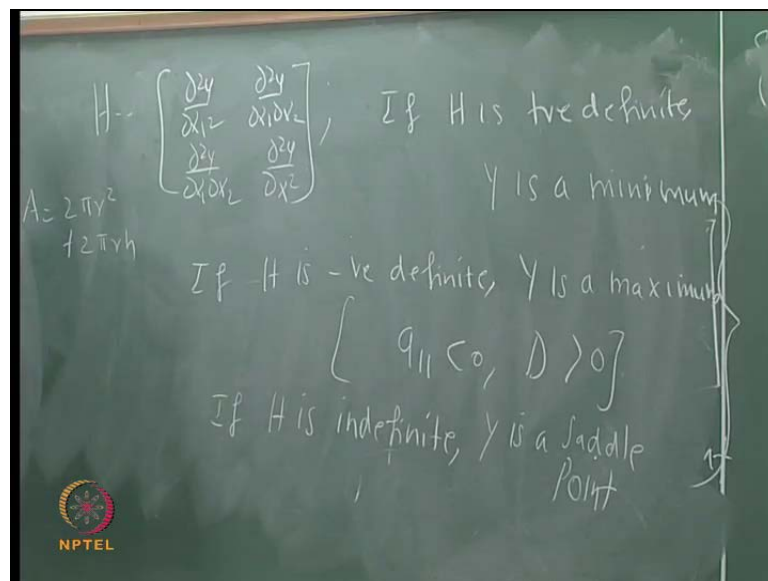 H = [ ∂²y/∂x₁² ∂²y/∂x₁∂x₂ ; If H is +ve definite,
∂²y/∂x₁∂x₂ ∂²y/∂x² ]
Y is a minimum
A = 2πr²
+2πrh
If H is -ve definite, Y is a maximum
[ a₁₁ < 0, D > 0 ]
If H is indefinite, Y is a saddle
Point
NPTEL